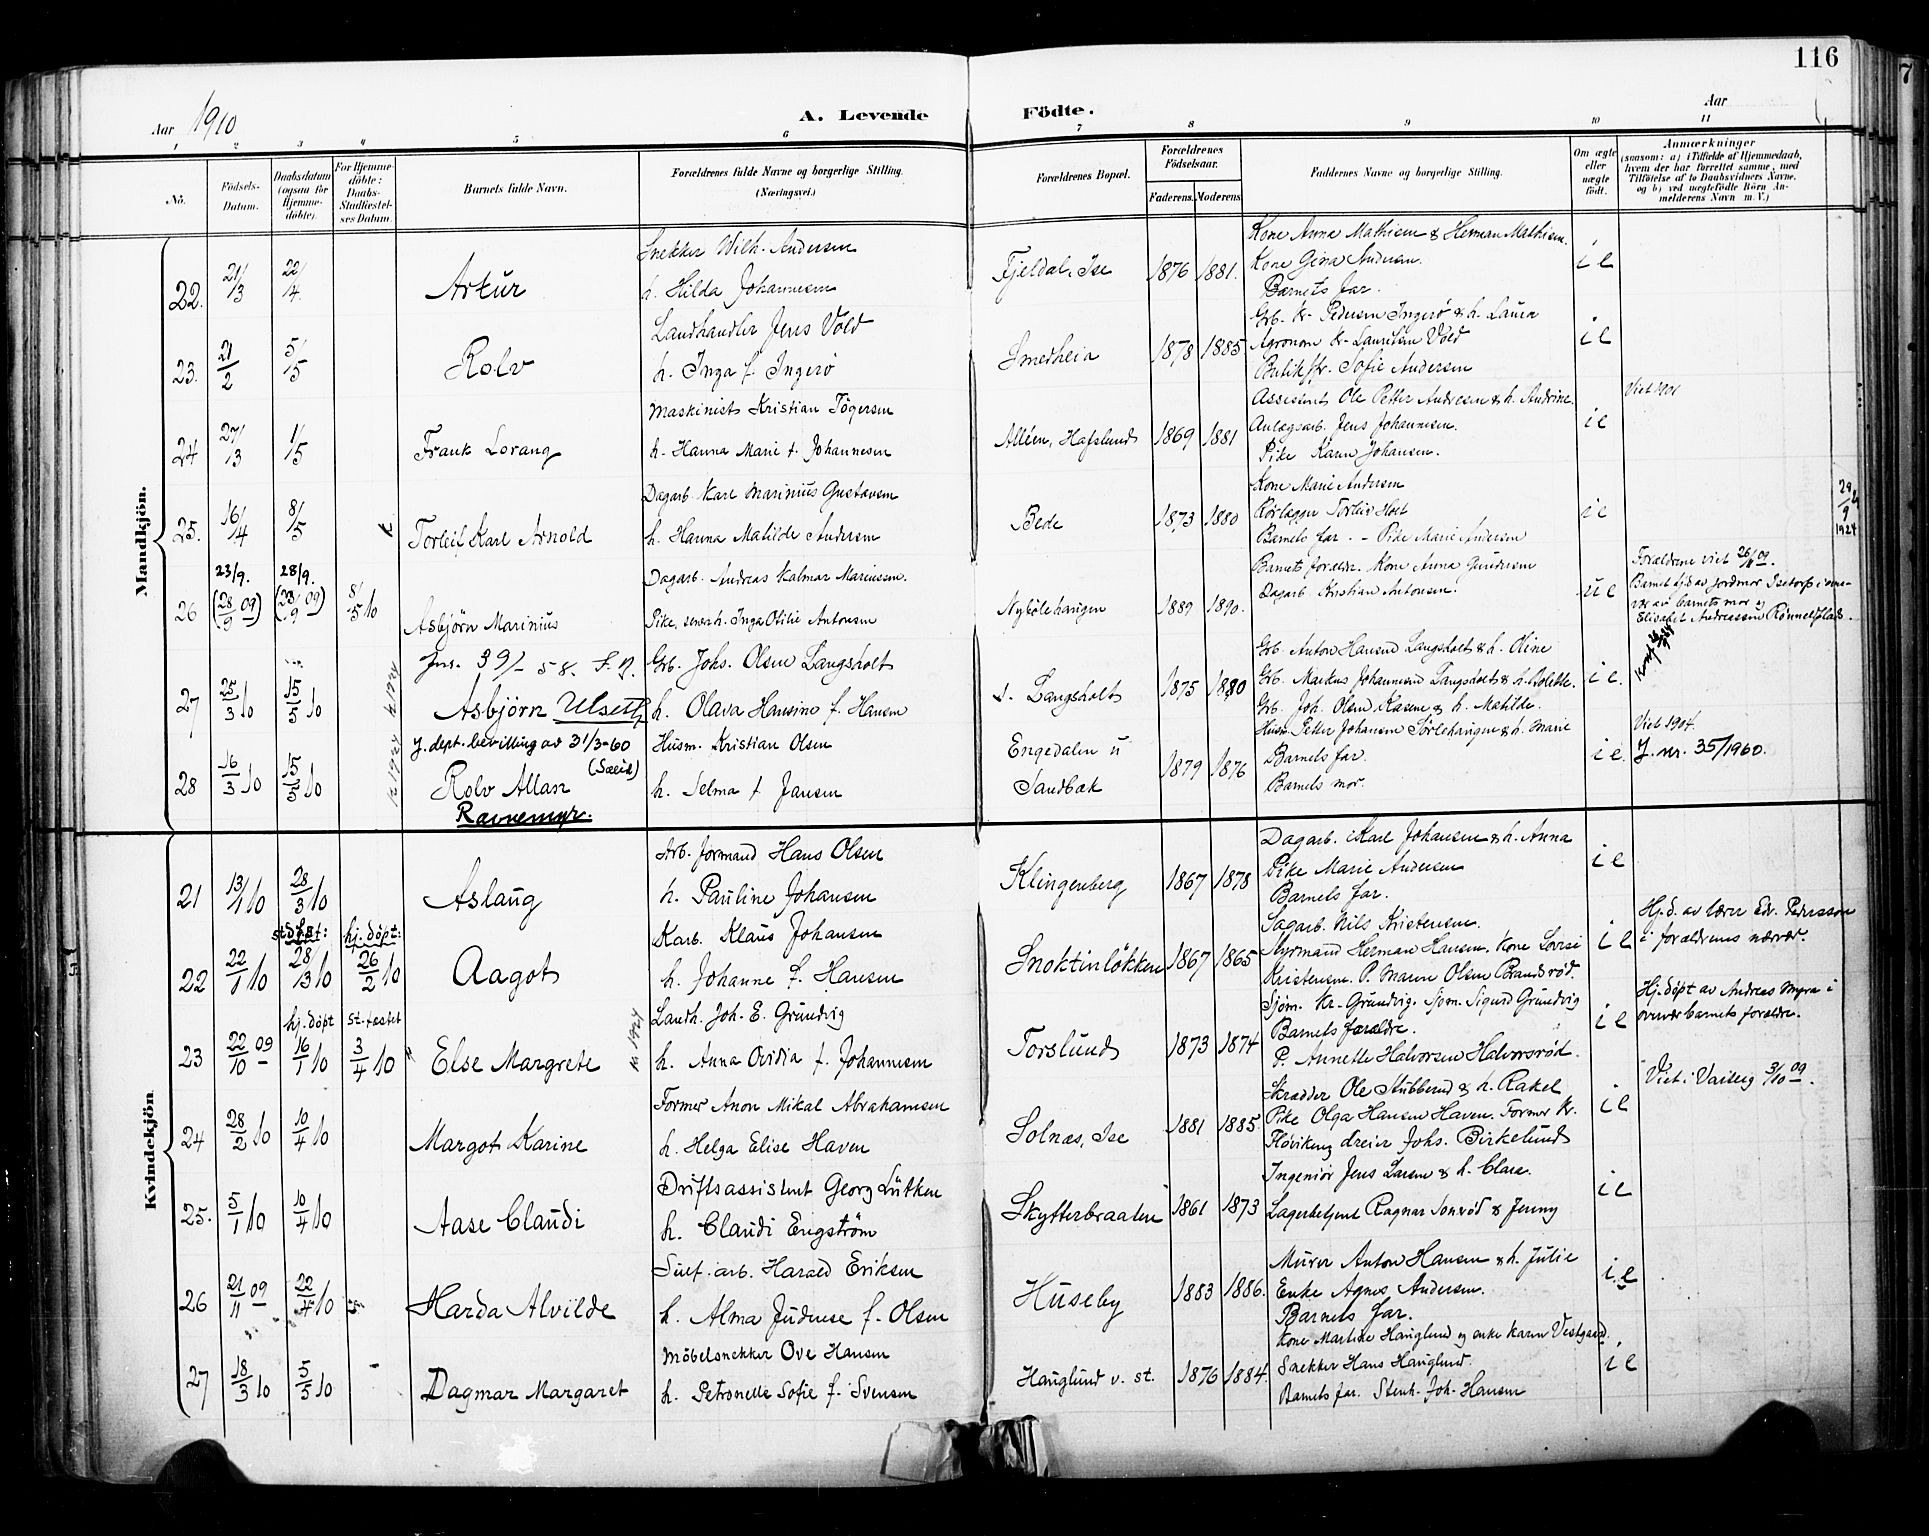 116
Aar 1910
A. Levende Födte.
Aar
1 2 3 4 5 6 7 8 9 10 11
No.
Födsels-Datum.
Daabsdatum (ogsaa for Hjemmedöbte).
For Hjemmedöbte: Daabs-Stadfæstelses Datum.
Barnets fulde Navn.
Forældrenes fulde Navne og borgerlige Stilling. (Næringsvei.)
Forældrenes Bopæl.
Forældrenes Födselsaar.
Faderens. Moderens.
Faddernes Navne og borgerlige Stilling.
Om ægte eller uægte födt.
Anmærkninger
(saasom: a) i Tilfælde af Hjemmedaab, hvem der har forrettet samme, med Tilföielse af to Daabsvidners Navne, og b) ved uægtefödte Börn Anmelderens Navn m. V.)
Mandkjön.
Snekker Wilh. Andersen
Kone Anna Mathisen & Herman Mathisen.
22. 21/3 22/4 Artur h. Hilda Johannesen Fjeldal, Ise 1876 1881. Kone Gina Andersen. i e
Barnets far.
Landhandler Jens Vold
Grb. Kr. Pedersen Ingerö & h. Laura
23. 21/2 5/5 Rolv h. Inga f. Ingerö Smedheia 1878 1885 Agronom Kr. Lauritsen Vold i e
Butikfr. Sofie Andersen
Maskinist Kristian Tögersen
Assistent Ole Petter Andresen & h. Andrine. Viet 1901
24 27/3 1/5 Frank Lorang h. Hanna Marie f. Johannesen Alléen, Hafslund 1869 1881 Anlægsarb. Jens Johannesen. i e
Pike Karen Johansen.
Dagarb. Karl Marinius Gustavsen
Kone Marie Andersen
25. 16/4 8/5 K Torleif Karl Arnold h. Hanna Matilde Andersen Bede 1873 1880 Rörlægger Torleif Holt i e 29/9 1924
Barnets far. - Pike Marie Andersen
23/9. 28/9.
Dagarb. Andreas Kalmar Mariussen.
Barnets forældr. Kone Anna Gundersen
Forældrene viet 26/11 09.
26 (28/9 09) (28/9 09) 8/5 10 Asbjörn Marinius Pike, senere h. Inga Otilie Antonsen Nybölehaugen 1889 1890. Dagarb Kristian Antonsen. u e
Barnet hj.d. av jordmor Isetorp i overvær av barnets mor og Elisabet Andreassen Rönneldplads.
Jnr. 39/-58. S.D. Grb. Johs. Olsen Langsholt
Grb. Anton Hansen Langsholt & h. Oline
27 25/3 10 15/5 10 K 1924 Asbjörn Ulseth h. Olava Hansine f. Hansen s. Langsholt 1875 1880 Grb. Markus Johannesen Langsholt & h. Bolette. i e.
Grb. Joh. Olsen Kasen & h. Matilde.
J. dept. bevilling av 31/3-60 Husm. Kristian Olsen
Husm Petter Johansen Sörlehaugen & h. Marie Viet 1904.
(Sæid)
28 16/3 10 15/5 10 K 1924 Rolv Allan h. Selma f Jansen Engedalen u Sandbæk 1879 1876 Barnets far. i e. J. nr. 35/1960.
Barnets mor.
Ravnemyr.
Kvindekjön.
Arb. formand Hans Olsen
Dagarb. Karl Johansen & h. Anna
21 13/4 10 28/3 10 Aslaug h. Pauline Johansen Klingenberg 1867 1878 Pike Marie Andersen i e
Barnets far.
hj. döpt:
Karb. Klaus Johansen
Sagarb. Nils Kristensen.
Hj.d. av lærer Edv. Pedersson i forældrenes nærvær.
22 22/1 10 28/3 10 26/2 10 Aagot h. Johanne f. Hansen Snoktinlökken 1867 1865 Styrmand Herman Hansen, kone Lovise i e
Kristensen. P. Maren Olsen Brandsröd.
hj. döpt st. fæstet
Landh. Joh. E. Grundvig
Sjöm. Kr. Grundvig. Sjöm. Sigurd Grundvig
Hj. döpt av Andreas Myra i overvær barnets forældre.
23 22/10 09 16/1 10 3/4 10 Else Margrete K 1924 h. Anna Ovidia f. Johannesen Torslund 1873 1874 Barnets forældre. i e
P. Annette Halvorsen Halvorsröd.
Former Anon Mikal Abrahamsen
Skrædder Ole Stubberud & h. Rakel
Viet i Varteig 3/10 09.
24 28/2 10 10/4 10 Margot Karine h. Helga Elise Haven Solnæs, Ise 1881 1885. Pike Olga Hansen Haven. Former Kr. i e
Hövikeng dreier Johs. Birkelund
Driftsassistent Georg Lütken
Ingeniör Jens Larsen & h. Clara.
25. 5/1 10 10/4 10 Aase Claudi h. Claudi Engström Skytterbraaten 1861 1873 Lagerbetjent Ragnar Sonröd & Jenny i e
Sulf. arb. Harald Eriksen
Murer Anton Hansen & h. Julie
26 21/11 09 22/4 10 Harda Alvilde h. Alma Judense f. Olsen Huseby 1883 1886. Enke Agnes Andersen. i e
Barnets far.
Möbelsnekker Ove Hansen
Kone Martine Hauglund og enke Karen Vestgaard.
27 18/3 10 5/5 10 Dagmar Margaret h. Petronelle Sofie f. Svensen Hauglund v. st. 1876 1884. Snekker Hans Hauglund. i e
Barnets far. Stenh. Joh. Hansen